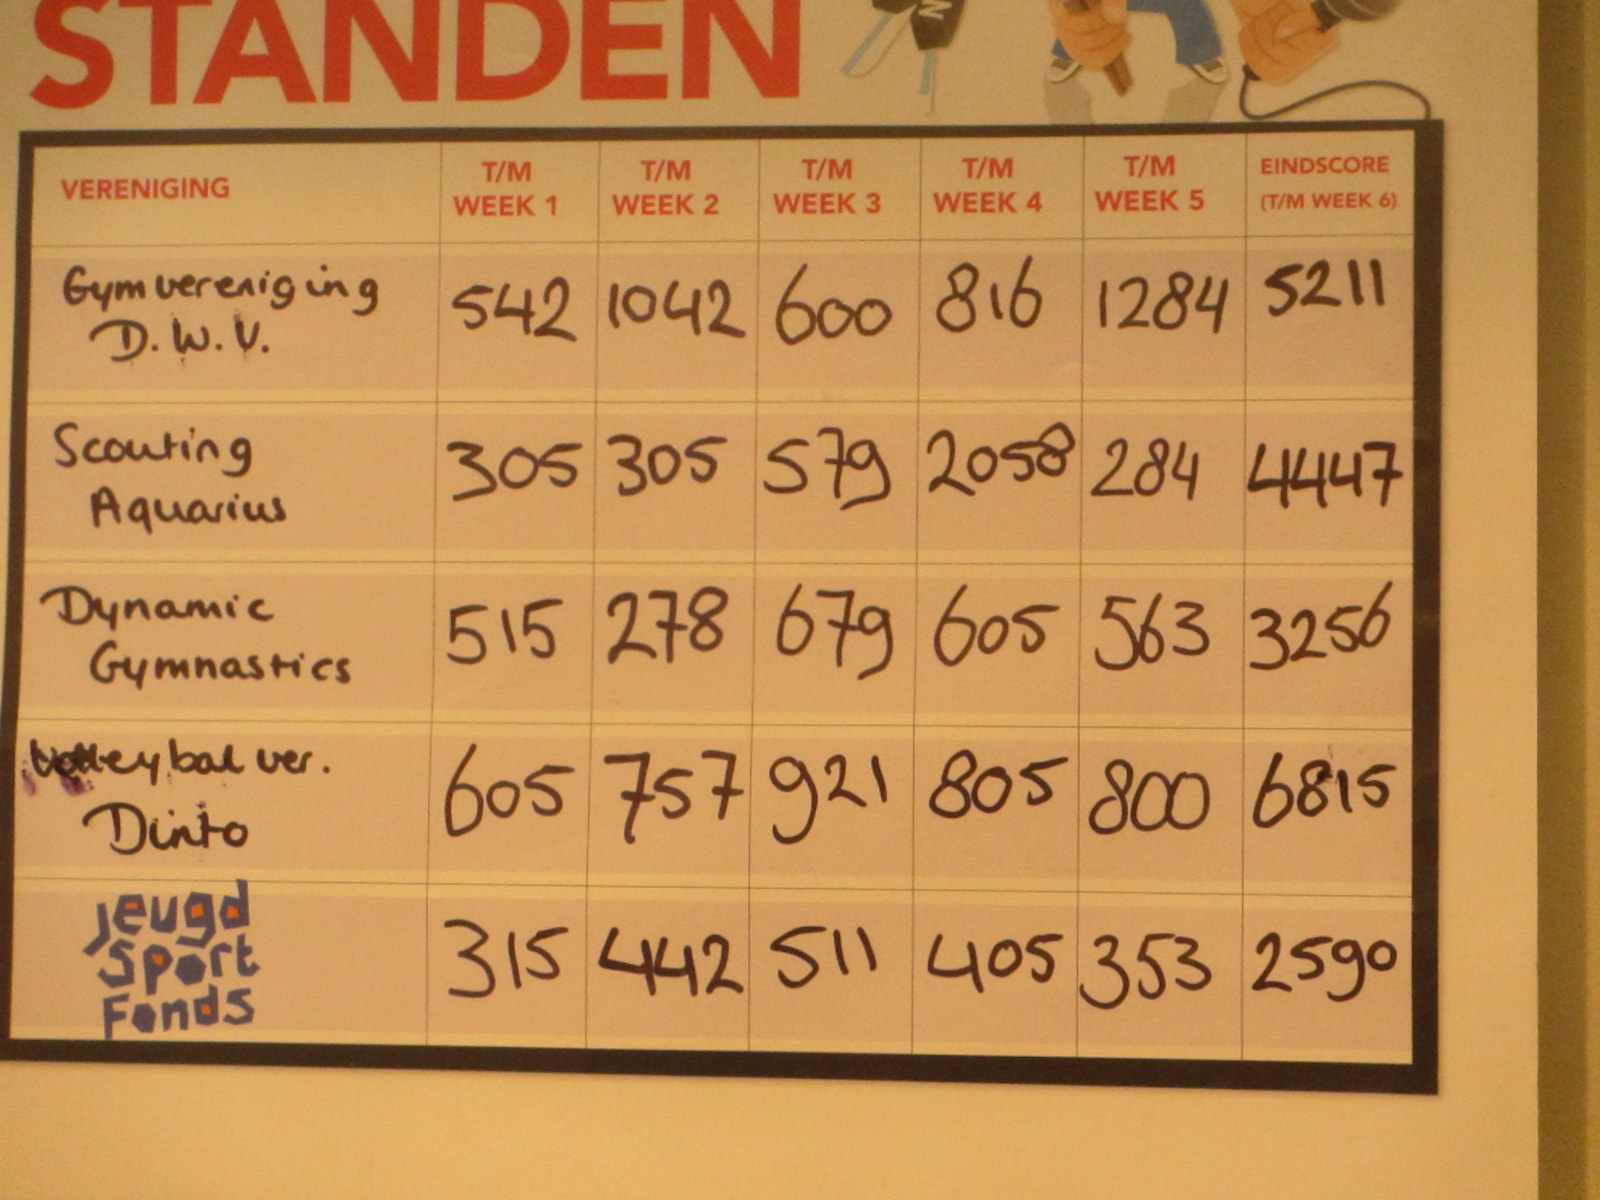 STANDEN
VERENIGING T/M WEEK 1 T/M WEEK 2 T/M WEEK 3 T/M WEEK 4 T/M WEEK 5 EINDSCORE (T/M WEEK 6)
Gymvereniging D.W.V. 542 1042 600 816 1284 5211
Scouting Aquarius 305 305 579 2058 284 4447
Dynamic Gymnastics 515 278 679 605 563 3256
Volleybal ver. Dinto 605 757 921 805 800 6815
Jeugd Sport Fonds 315 442 511 405 353 2590